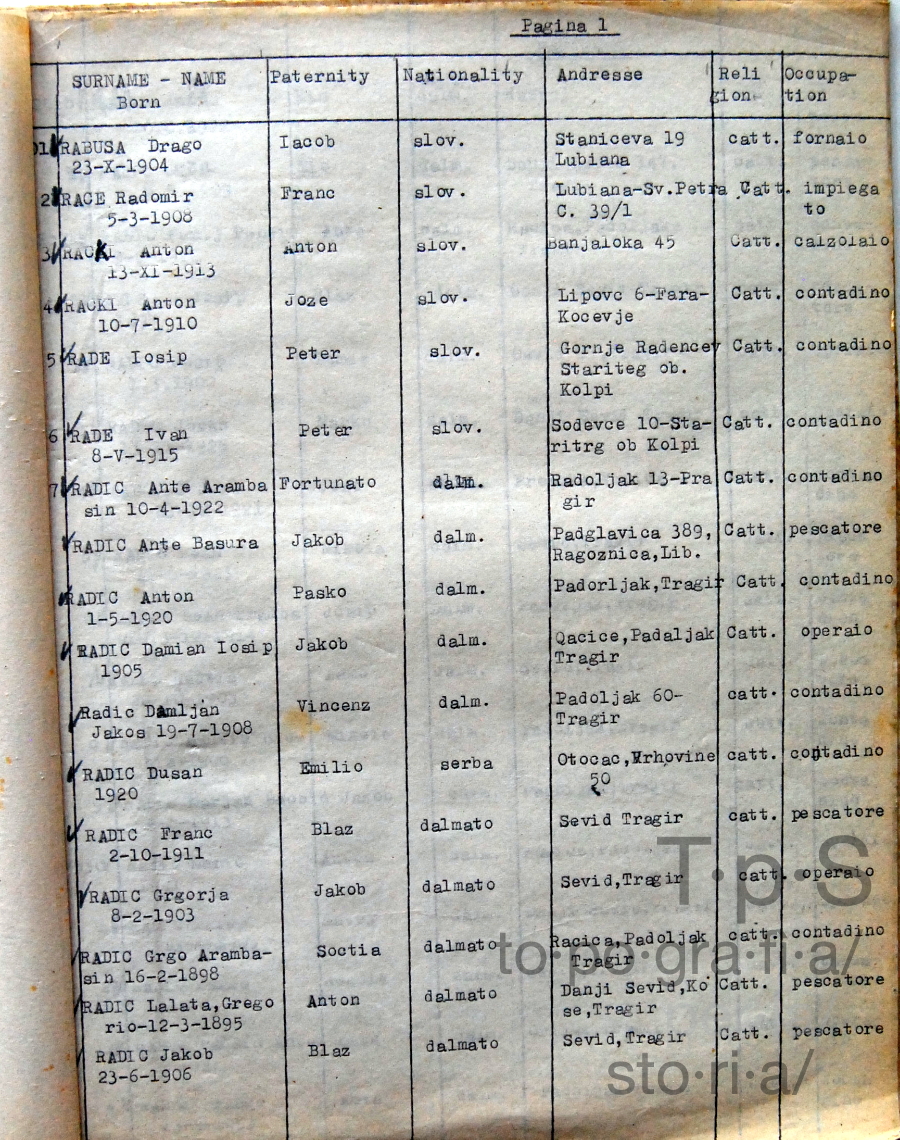 Pagina 1
SURNAME - NAME Paternity Nationality Andresse Reli Occupa-
Born gion- tion
01 RABUSA Drago Iacob slov. Staniceva 19 catt. fornaio
23-X-1904 Lubiana
2 RACE Radomir Franc slov. Lubiana-Sv.Petra Catt. impiega
5-3-1908 C. 39/1 to
3 RACKI Anton Anton slov. Banjaloka 45 Catt. calzolaio
13-XI-1913
4 RACKI Anton Joze slov. Lipovc 6-Fara- Catt. contadino
10-7-1910 Kocevje
5 RADE Iosip Peter slov. Gornje Radencev Catt. contadino
Stariteg ob.
Kolpi
6 RADE Ivan Peter slov. Sodevce 10-Sta- Catt. contadino
8-V-1915 ritrg ob Kolpi
7 RADIC Ante Aramba Fortunato dalm. Radoljak 13-Pra Catt. contadino
sin 10-4-1922 gir
RADIC Ante Basura Jakob dalm. Padglavica 389, Catt. pescatore
Ragoznica,Lib.
RADIC Anton Pasko dalm. Padorljak,Tragir Catt. contadino
1-5-1920
RADIC Damian Iosip Jakob dalm. Qacice,Padaljak Catt. operaio
1905 Tragir
Radic Damljan Vincenz dalm. Padoljak 60- catt. contadino
Jakos 19-7-1908 Tragir
RADIC Dusan Emilio serba Otocac,Vrhovine catt. contadino
1920 50
RADIC Franc Blaz dalmato Sevid Tragir catt. pescatore
2-10-1911
RADIC Grgorja Jakob dalmato Sevid,Tragir catt. operaio
8-2-1903
RADIC Grgo Aramba- Soctia dalmato Racica,Padoljak catt. contadino
sin 16-2-1898 Tragir
RADIC Lalata,Grego Anton dalmato Danji Sevid,Ko Catt. pescatore
rio-12-3-1895 se,Tragir
RADIC Jakob Blaz dalmato Sevid,Tragir Catt. pescatore
23-6-1906
T·p·S
to·po·gra·fi·a/
sto·ri·a/